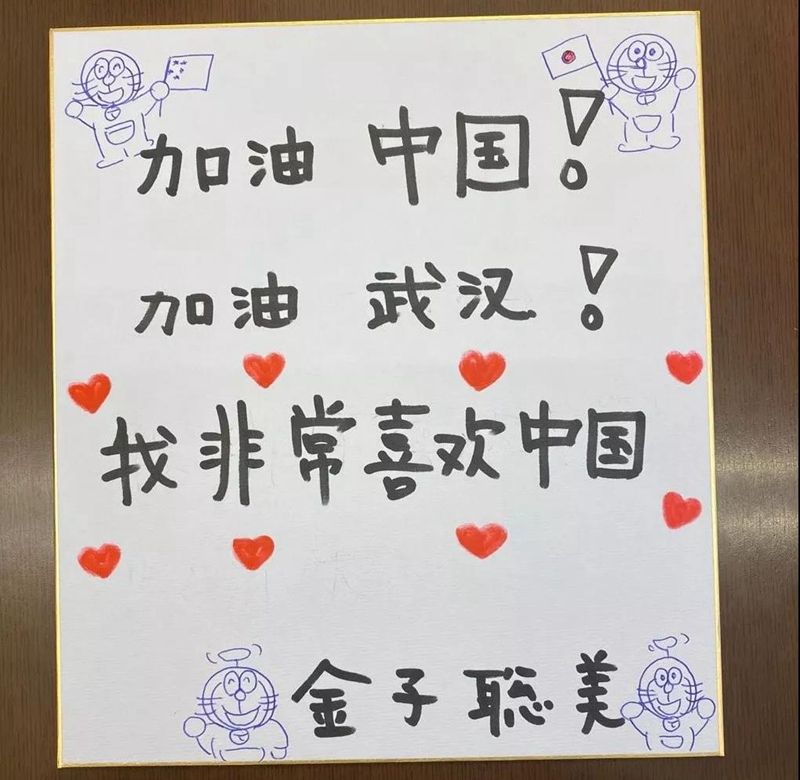 加油 中国!
加油 武汉!
我非常喜欢中国
金子聡美